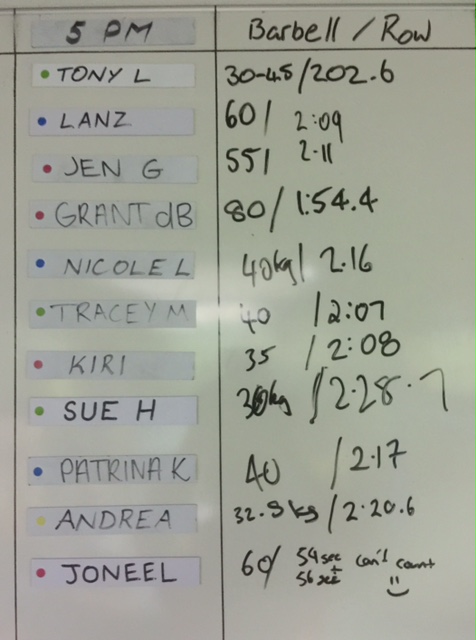 5 PM Barbell / Row
TONY L 30-45/202.6
LANZ 60/ 2:09
JEN G 55/ 2.11
GRANT dB 80/ 1:54.4
NICOLE L 40kg/ 2.16
TRACEY M 40 /2:07
KIRI 35 /2:08
SUE H kg /2.28.7
PATRINA K 40 /2.17
ANDREA 32.5kg/2.20.6
JONEEL 60/ 54sec + 56sec can't count